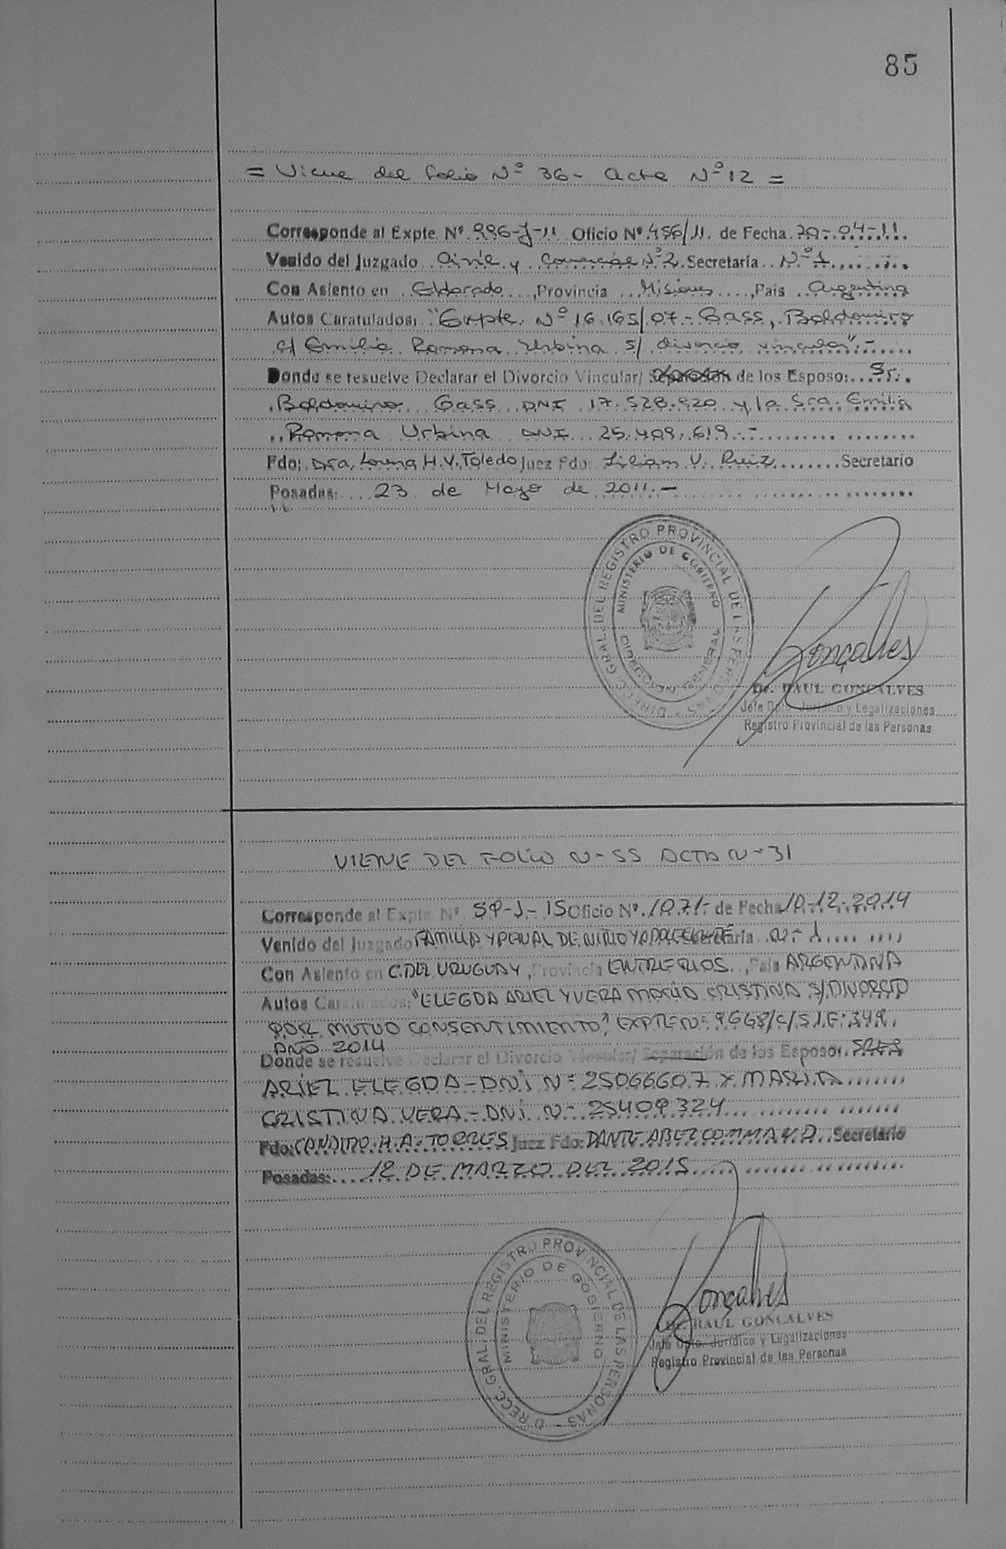 85
= Viene del folio Nº 36 - Acta Nº 12 =
Corresponde al Expte. Nº 996-J-11 Oficio Nº 456/11. de Fecha 20-04-11
Venido del Juzgado Civil y Comercial Nº 2. Secretaría Nº 1
Con Asiento en Eldorado, Provincia Misiones, País Argentina
Autos Caratulados: "Expte. Nº 16.165/07 - Gass, Baldomiro
c/ Emilia Ramona Urbina s/ divorcio vincular".-
Donde se resuelve Declarar el Divorcio Vincular/ Separación de los Esposo: Sr.
Baldomiro Gass DNI 17.528.920 y la Sra. Emilia
Ramona Urbina DNI 25.409.619.-
Fdo: Dra. Lorna H.Y. Toledo Juez Fdo: Liliam V. Ruiz Secretario
Posadas: 23 de Mayo de 2011.-
DIREC. GRAL. DEL REGISTRO PROVINCIAL DE LAS PERSONAS
MINISTERIO DE GOBIERNO
DIRECCION GENERAL
Gonçalves
Dr. RAUL GONCALVES
Jefe Dpto. Jurídico y Legalizaciones
Registro Provincial de las Personas
VIENE DEL FOLIO N- 55 ACTA N- 31
Corresponde al Expte. Nº. 59-J-15 Oficio Nº. 1071- de Fecha 10-12-2014
Venido del Juzgado FAMILIA Y PENAL DE NIÑO Y ADOLESCENTE Secretaría N- 1
Con Asiento en C. DEL URUGUAY, Provincia ENTRE RIOS, País ARGENTINA
Autos Caratulados: "ELEGDA ARIEL Y VERA MARIA CRISTINA S/DIVORCIO
POR MUTUO CONSENTIMIENTO" EXPTE N- 9668/C/S.I.F: 349.
AÑO 2014
Donde se resuelve Declarar el Divorcio Vincular/ Separación de los Esposo: SRES
ARIEL ELEGDA - DNI N- 25066607 Y MARIA
CRISTINA VERA - DNI N- 25409324
Fdo: CANDIDO H.A. TORRES Juez Fdo: DANTE Secretario
Posadas: 12 DE MARZO DEL 2015
DIRECC. GRAL. DEL REGISTRO PROVINCIAL DE LAS PERSONAS
MINISTERIO DE GOBIERNO
Gonçalves
Dr. RAUL GONCALVES
Jefe Dpto. Jurídico y Legalizaciones
Registro Provincial de las Personas